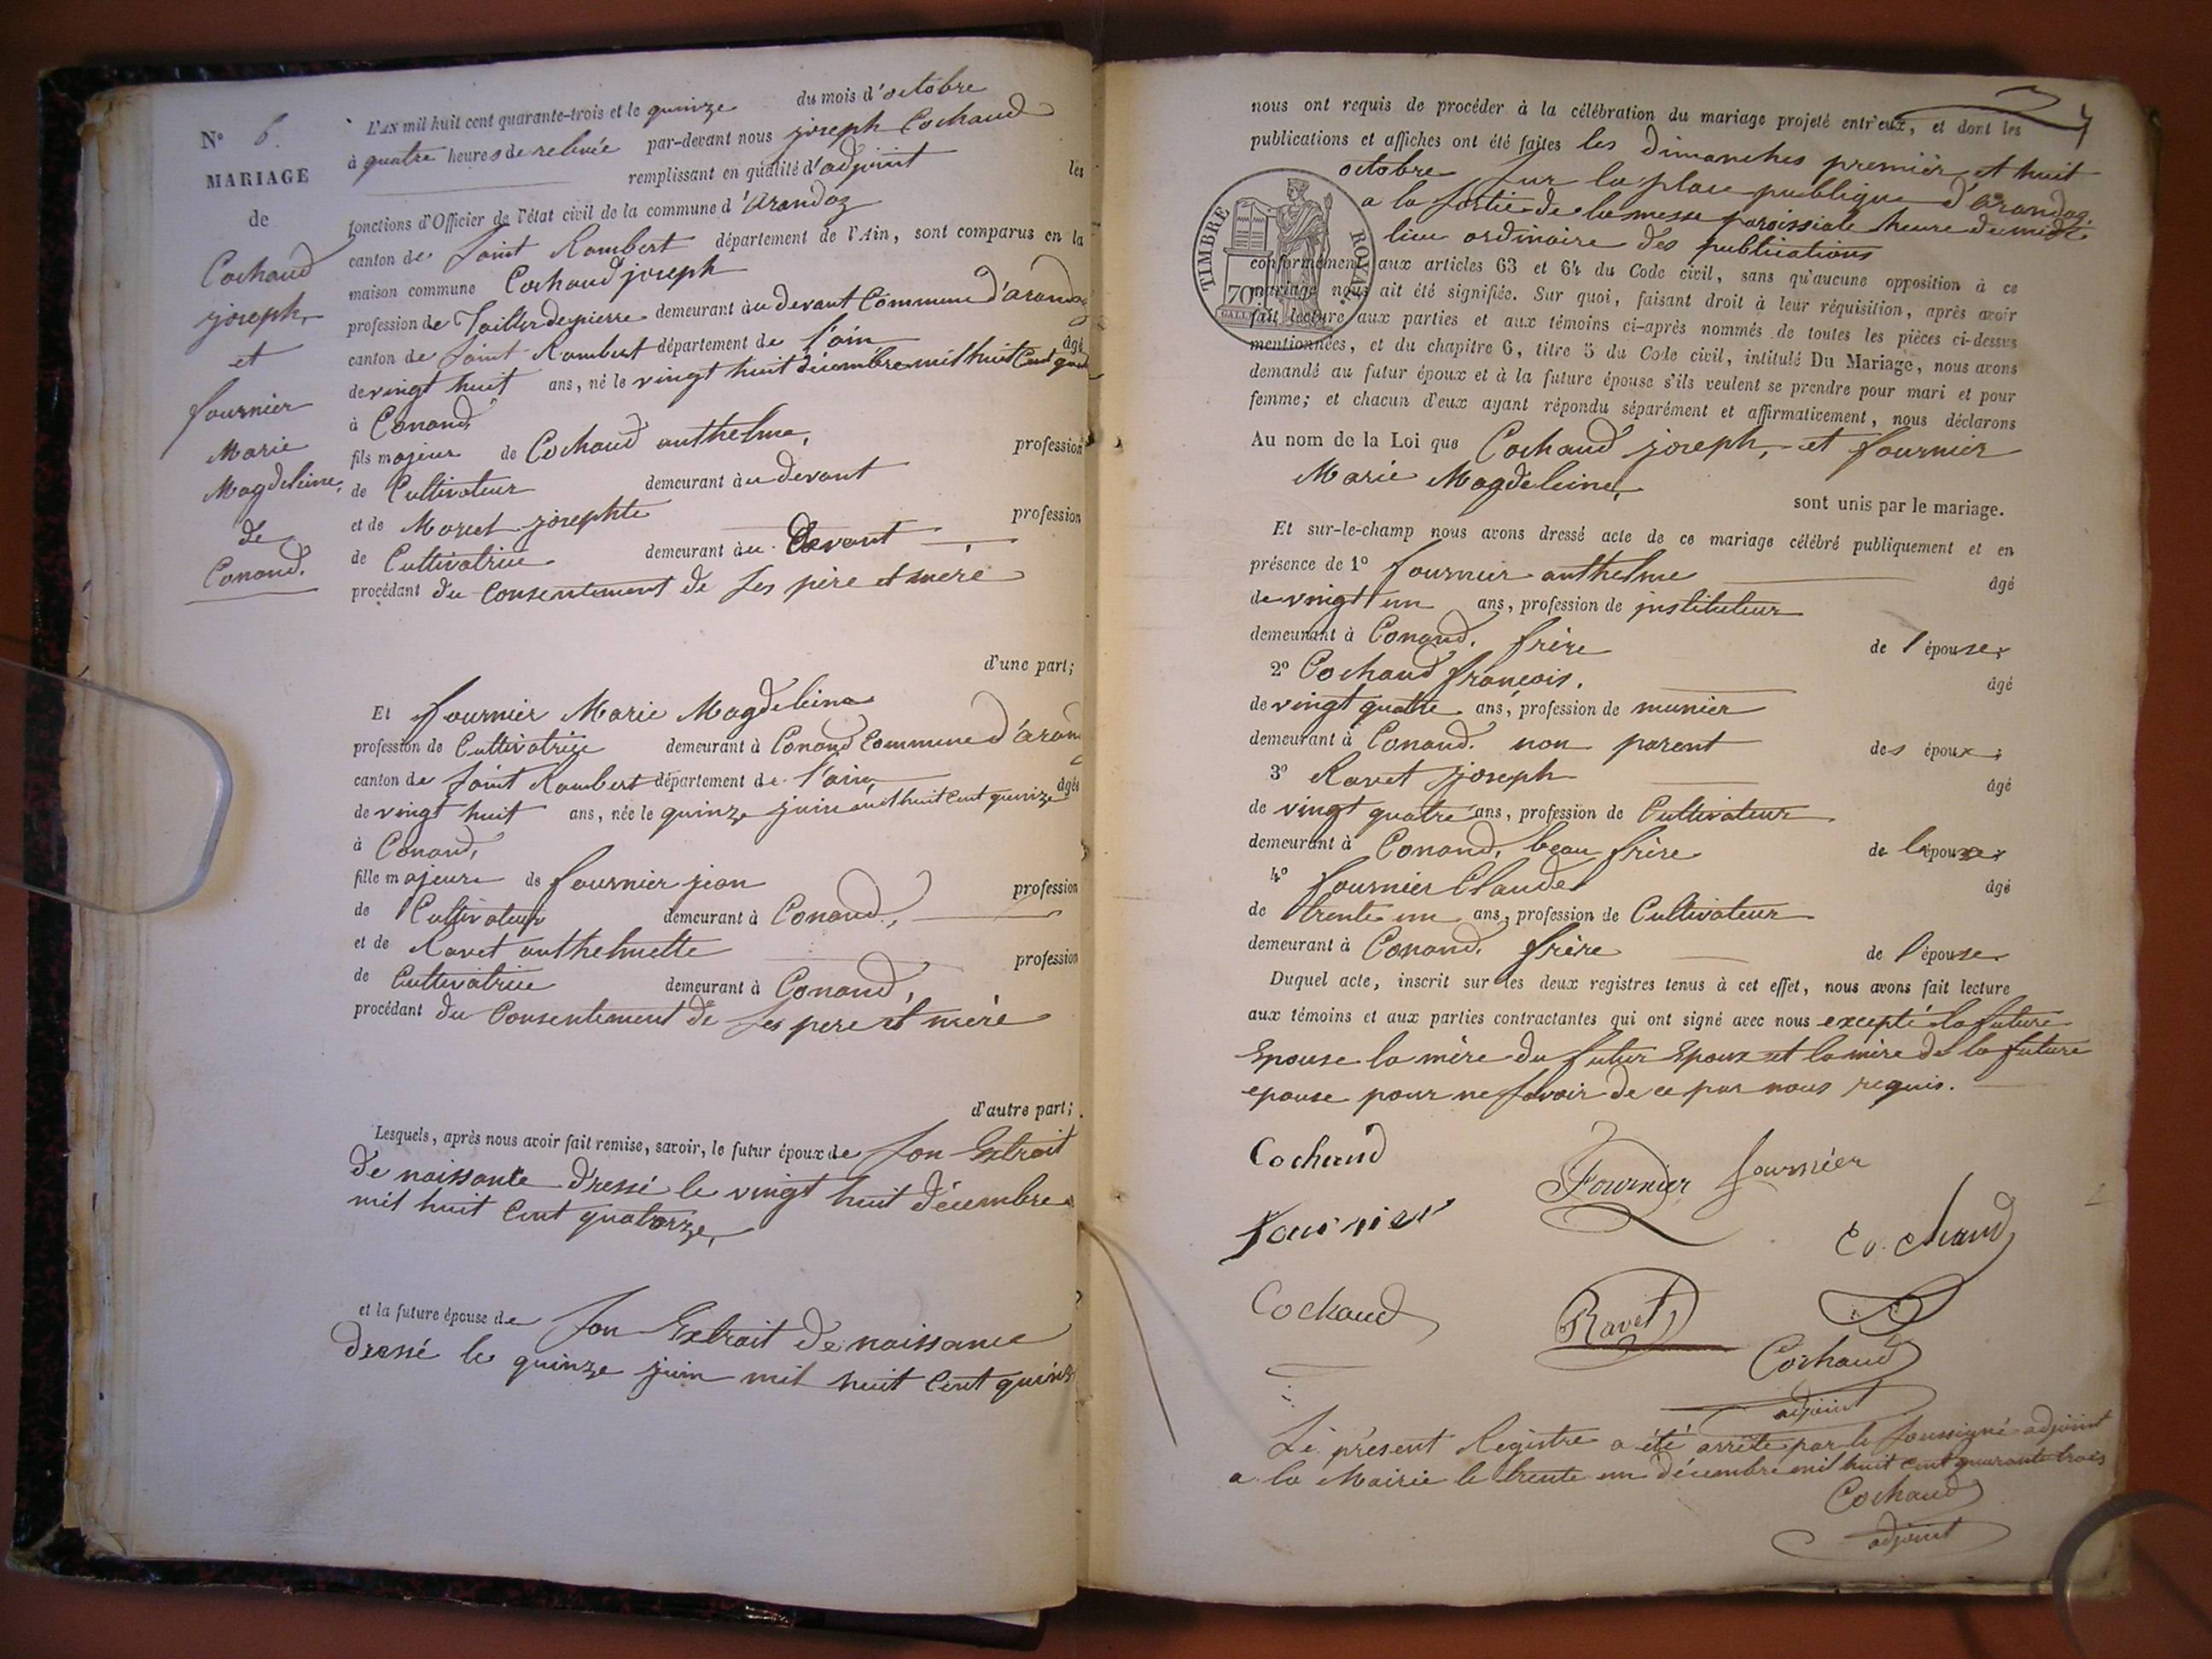 N° 6.
MARIAGE
de
Cochaud
joseph,
et
fournier
Marie
Magdeleine,
de
Conand.
L'AN mil huit cent quarante-trois et le quinze du mois d'octobre
à quatre heures de relevée par-devant nous joseph Cochaud
remplissant en qualité d'adjoint les
fonctions d'Officier de l'état civil de la commune d'arandaz
canton de Saint Rambert département de l'Ain, sont comparus en la
maison commune Cochaud joseph
profession de Tailler de pierre demeurant àu devant Commune d'arandaz
canton de Saint Rambert département de l'ain âgé
de vingt huit ans, né le vingt huit décembre mil huit Cent
à Conand,
fils majeur de Cochaud anthelme, profession
de Cultivateur demeurant àu devant
et de Moret josephte profession
de Cultivatrice demeurant àu Devant
procédant du Consentement de ses père et mère
d'une part;
Et fournier Marie Magdeleine
profession de Cultivatrice demeurant à Conand Commune d'aran
canton de Saint Rambert département de l'ain âgée
de vingt huit ans, née le quinze juin mil huit cent quinze
à Conand,
fille majeure de fournier jean profession
de Cultivateur demeurant à Conand,
et de Ravet anthelmette profession
de Cultivatrice demeurant à Conand,
procédant du Consentement de ses pere et mère
d'autre part;
Lesquels, après nous avoir fait remise, savoir, le futur époux de son Extrait
de naissante dressé le vingt huit décembre
mil huit Cent quatorze,
et la future épouse de son Extrait de naissance
dressé le quinze juin mil huit Cent quinz
nous ont requis de procéder à la célébration du mariage projeté entr'eux, et dont les
publications et affiches ont été faites les dimanches premier et huit
octobre sur la place publique d'arandaz.
a la sortie de la messe paroissiale heure de midi
lieu ordinaire des publications
TIMBRE ROYAL
70
conformément aux articles 63 et 64 du Code civil, sans qu'aucune opposition à ce
mariage nous ait été signifiée. Sur quoi, faisant droit à leur réquisition, après avoir
fait lecture aux parties et aux témoins ci-après nommés de toutes les pièces ci-dessus
mentionnées, et du chapitre 6, titre 5 du Code civil, intitulé Du Mariage, nous avons
demandé au futur époux et à la future épouse s'ils veulent se prendre pour mari et pour
femme; et chacun d'eux ayant répondu séparément et affirmativement, nous déclarons
Au nom de la Loi que Cochaud joseph, et fournier
Marie Magdeleine,
sont unis par le mariage.
Et sur-le-champ nous avons dressé acte de ce mariage célébré publiquement et en
présence de 1° fournier anthelme âgé
de vingt un ans, profession de instituteur
demeurant à Conand. frère de l'épouse,
2° Cochaud françois. âgé
de vingt quatre ans, profession de munier
demeurant à Conand. non parent des époux;
3° Ravet joseph âgé
de vingt quatre ans, profession de Cultivateur
demeurant à Conand, beau frère de
4° fournier Claude âgé
de trente un ans, profession de Cultivateur
demeurant à Conand. frère de l'épouse.
Duquel acte, inscrit sur les deux registres tenus à cet effet, nous avons fait lecture
aux témoins et aux parties contractantes qui ont signé avec nous excepté la future
Epouse la mère du futur Epoux et la mère de la future
epouse pour ne savoir de ce par nous requis.
Cochaud
Fournier fournier
fournier
Cochaud
Cochaud
Ravet
Cochaud
adjoint
Le présent Registre a été arrêté par le soussigné adjoint
a la Mairie le trente un décembre mil huit cent quarante trois
Cochaud
adjoint